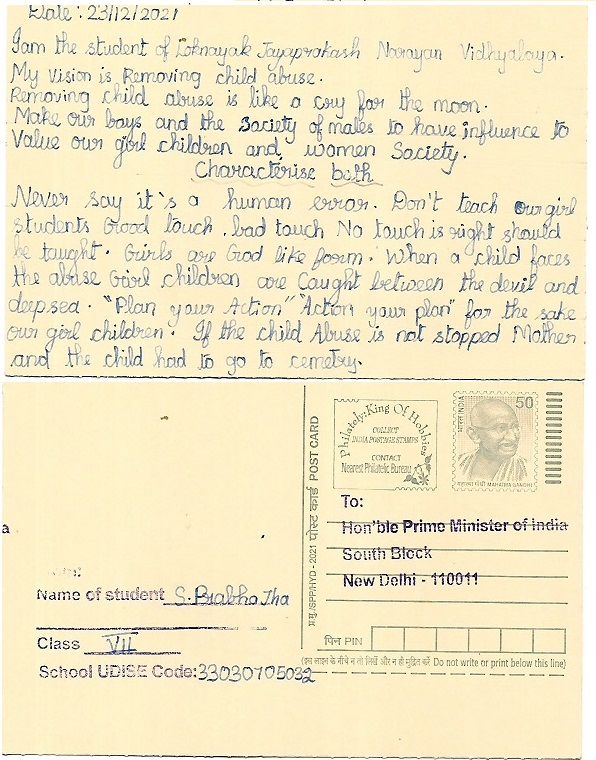 Date : 23/12/2021
I am the student of Loknayak Jayaprakash Narayan Vidhyalaya.
My Vision is Removing child abuse.
Removing child abuse is like a cry for the moon.
Make our boys and the society of males to have influence to
Value our girl children and women Society.
Characterise both
Never say it's a human error. Don't teach our girl
students Good touch, bad touch No touch is right should
be taught. Girls are God like form. When a child faces
the abuse Girl children are Caught between the devil and
deepsea. "Plan your Action" "Action your plan" for the sake
our girl children. If the child Abuse is not stopped Mother
and the child had to go to cemetry.
Philately: King Of Hobbies
COLLECT
INDIA POSTAGE STAMPS
CONTACT
Nearest Philatelic Bureau
भारत INDIA
50
महात्मा गाँधी MAHATMA GANDHI
प्र.मु./SPP/HYD - 2021 पोस्ट कार्ड POST CARD
To:
Hon'ble Prime Minister of India
South Block
New Delhi - 110011
a
Name of student S. Prabho Tha
Class VII
School UDISE Code: 33030705032
पिन PIN
(इस लाइन के नीचे न तो लिखें और न ही मुद्रित करें Do not write or print below this line)